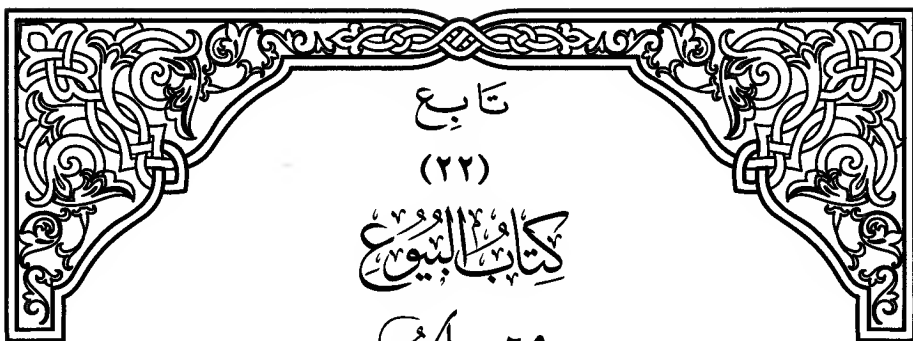 تَابِع
(٢٢)
كِتَابُ الْبُيُوعِ